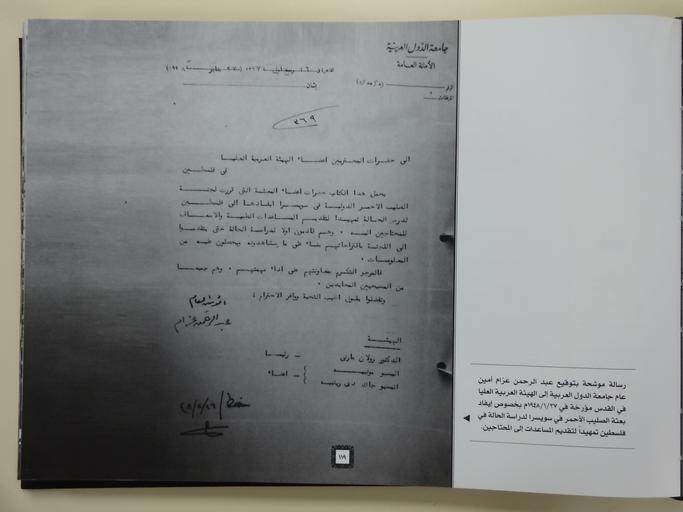 جامعة الدول العربية
الأمانة العامة
٣٦٩
الى حضرات المحترمين اعضاء الهيئة العربية العليا
فى فلسطين
يحمل هذا الكتاب حضرات اعضاء البعثة التى قررت لجنة
الصليب الاحمر الدولية فى سويسرا ايفادها الى فلسطين
لدرس الحالة تمهيدا لتقديم المساعدات الطبية والاسعاف
للمحتاجين اليه . وهم قادمون اولا لدراسة الحالة حتى يتقدموا
الى اللجنة باقتراحاتهم بناء على ما يشاهدونه ويحصلون عليه من
المعلومات .
فالمرجو التكرم بمعاونتهم على اداء مهمتهم . وهم جميعا
من المسيحيين المحايدين .
وتفضلوا بقبول اطيب التحية ووافر الاحترام ؛
عبد الرحمن عزام
الهيئة
الدكتور رولان مارتى – رئيسا
المسيو
المسيو جاك دى رينيه – اعضاء
١١٩
رسالة موشحة بتوقيع عبد الرحمن عزام أمين
عام جامعة الدول العربية إلى الهيئة العربية العليا
في القدس مؤرخة في ١٩٤٨/١/٢٧م بخصوص إيفاد
بعثة الصليب الأحمر في سويسرا لدراسة الحالة في
فلسطين تمهيداً لتقديم المساعدات إلى المحتاجين.